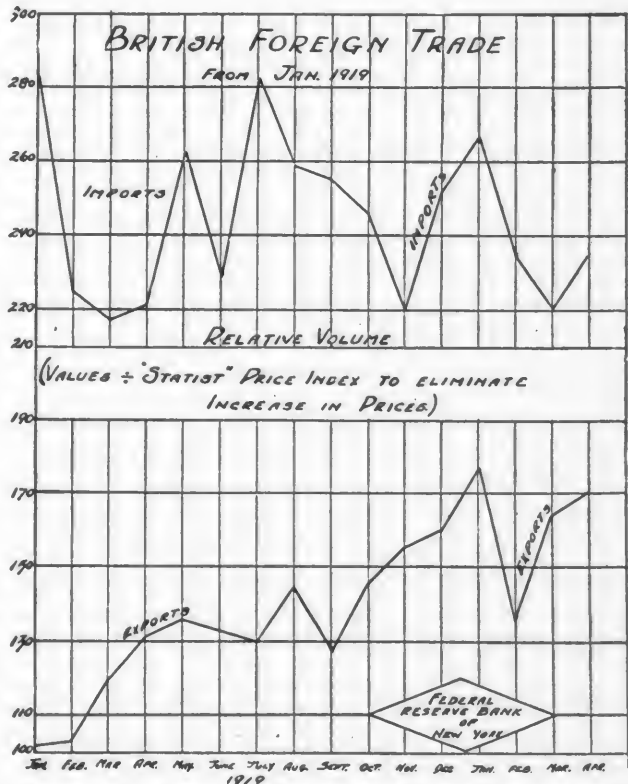 BRITISH FOREIGN TRADE
FROM JAN. 1919
300
280
260
240
220
210
IMPORTS
IMPORTS
RELATIVE VOLUME
(VALUES ÷ "STATIST" PRICE INDEX TO ELIMINATE
INCREASE IN PRICES)
190
170
150
130
110
100
EXPORTS
EXPORTS
FEDERAL
RESERVE BANK
OF
NEW YORK
JAN. FEB. MAR. APR. MAY JUNE JULY AUG. SEPT. OCT. NOV. DEC. JAN. FEB. MAR. APR.
1919